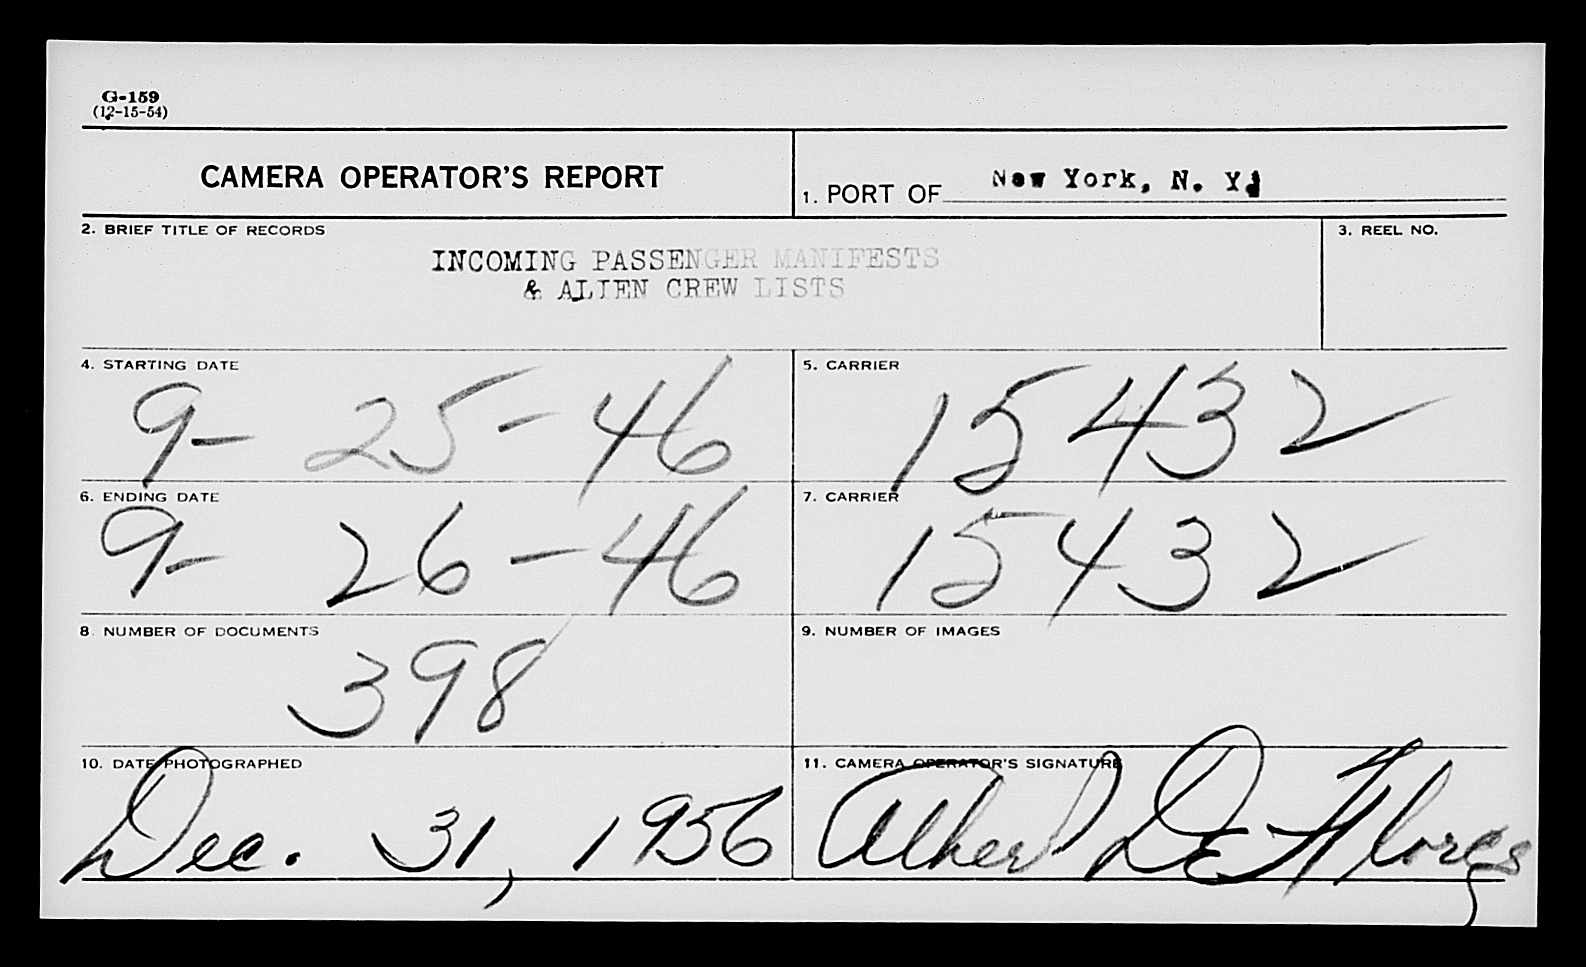 G-159
(12-15-54)
CAMERA OPERATOR'S REPORT
1. PORT OF New York, N. Y.
2. BRIEF TITLE OF RECORDS
3. REEL NO.
INCOMING PASSENGER MANIFESTS
& ALIEN CREW LISTS
4. STARTING DATE
5. CARRIER
9-25-46
15432
6. ENDING DATE
7. CARRIER
9-26-46
15432
8. NUMBER OF DOCUMENTS
9. NUMBER OF IMAGES
398
10. DATE PHOTOGRAPHED
11. CAMERA OPERATOR'S SIGNATURE
Dec. 31, 1956
Albert De Flores